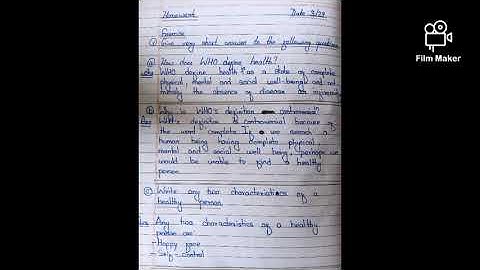 Homework Date 3/29
Exercise
① Give very short answer to the following questions
ⓐ How does WHO define health?
Ans WHO define health "as a state of complete
physical, mental and social well-being and not
merely the absence of disease or infirmity
ⓑ Why is WHO's definition controversial?
Ans WHO's definition is controversial because of
the word complete If we search a
human being having complete physical,
mental and social well being, perhaps we
would be unable to find a healthy
person.
ⓒ Write any two characteristics of a
healthy person.
Ans Any two characteristics of a healthy
person are:
- Happy face
- Self-control
Film Maker